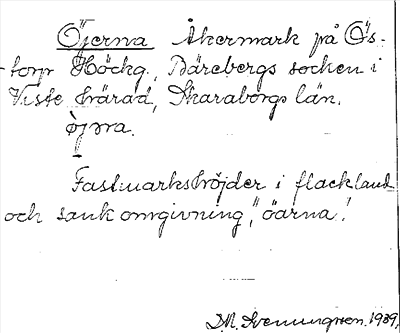 Öjerna Åkermark på Ös-
torp Höckg., Bärebergs socken i
Viste härad, Skaraborgs län.
òjɒra.
Fastmarkshöjder i flackland
och sank omgivning, "öarna".
D.M. Svenungsson. 1939.